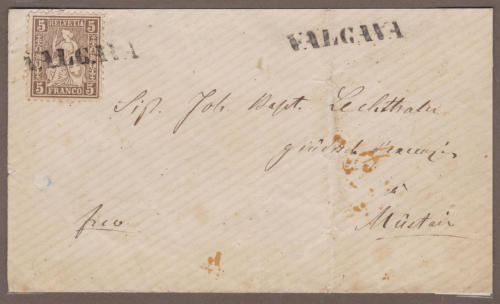 5 HELVETIA 5
5 5
FRANCO
VALCAVA
VALCAVA
Sigr. Joh. Bapt. Lechthaler
à
Müstair
frco